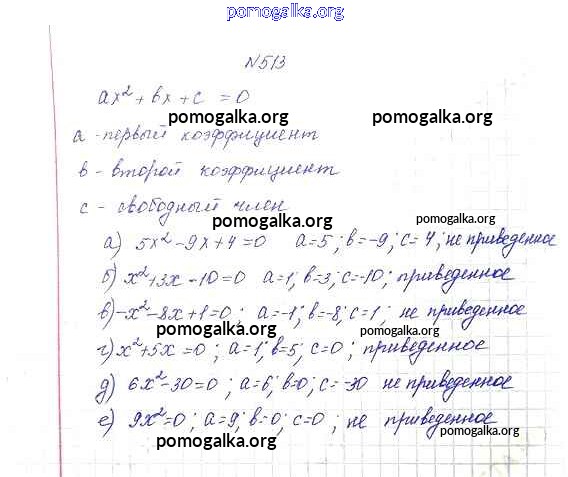 pomogalka.org
N513
ax² + bx + c = 0
pomogalka.org pomogalka.org
a - первый коэффициент
b - второй коэффициент
c - свободный член
pomogalka.org pomogalka.org
а) 5x² - 9x + 4 = 0 a = 5; b = -9; c = 4; не приведенное
pomogalka.org
б) x² + 3x - 10 = 0 a = 1; b = 3, c = -10; приведенное
pomogalka.org
в) -x² - 8x + 1 = 0; a = -1; b = -8; c = 1; не приведенное
pomogalka.org pomogalka.org
г) x² + 5x = 0; a = 1; b = 5; c = 0; приведенное
pomogalka.org
д) 6x² - 30 = 0; a = 6; b = 0; c = -30 не приведенное
pomogalka.org
е) 9x² = 0; a = 9; b = 0; c = 0; не приведенное
pomogalka.org pomogalka.org